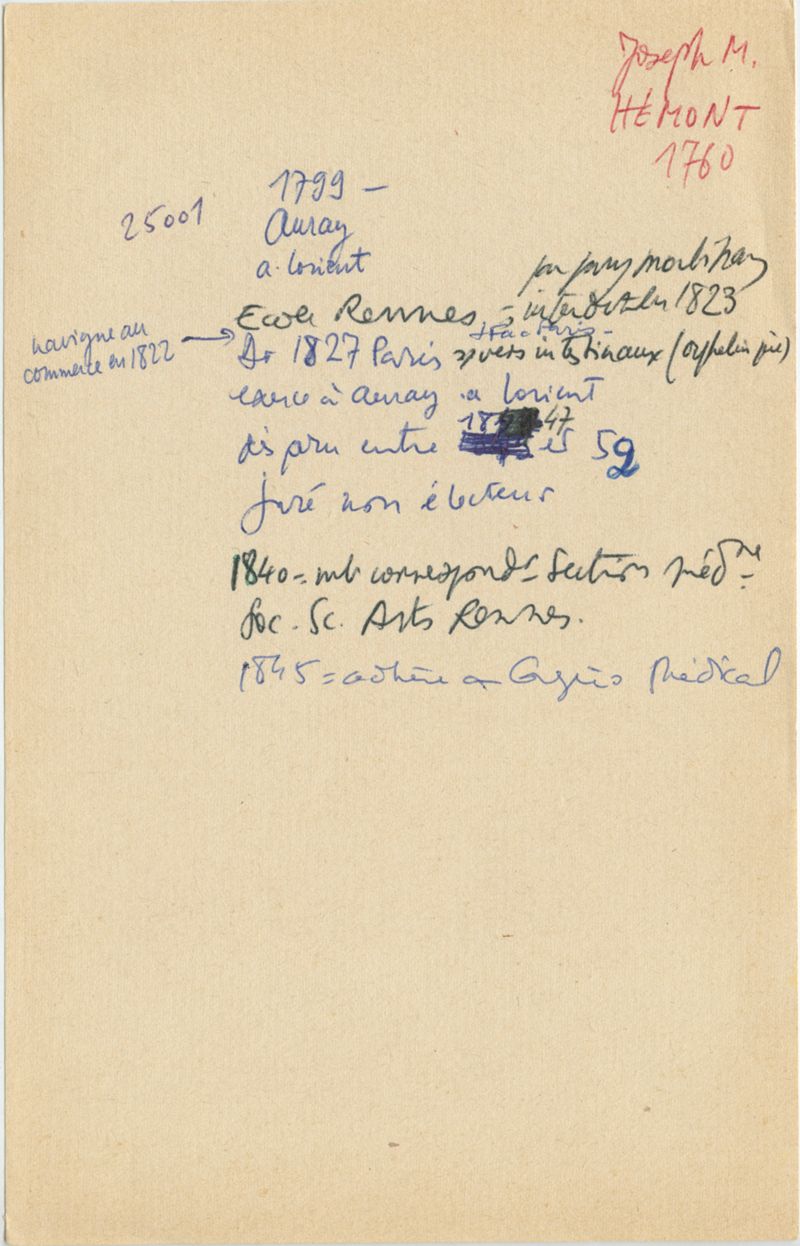 Joseph M.
HÉMONT
1760
1799 –
25001
Auray
a. Lorient
par jury morbihan
Ecole Rennes = interdit en 1823
navigue au
commerce en 1822
Dr 1827 Paris vers intestinaux (orphelin père)
exerce à Auray a Lorient
disparu entre 47 et 52
juré non électeur
1840 = mb correspondt Section médne
Soc. Sc. Arts Rennes.
1845 = adhère au Congrès Médical